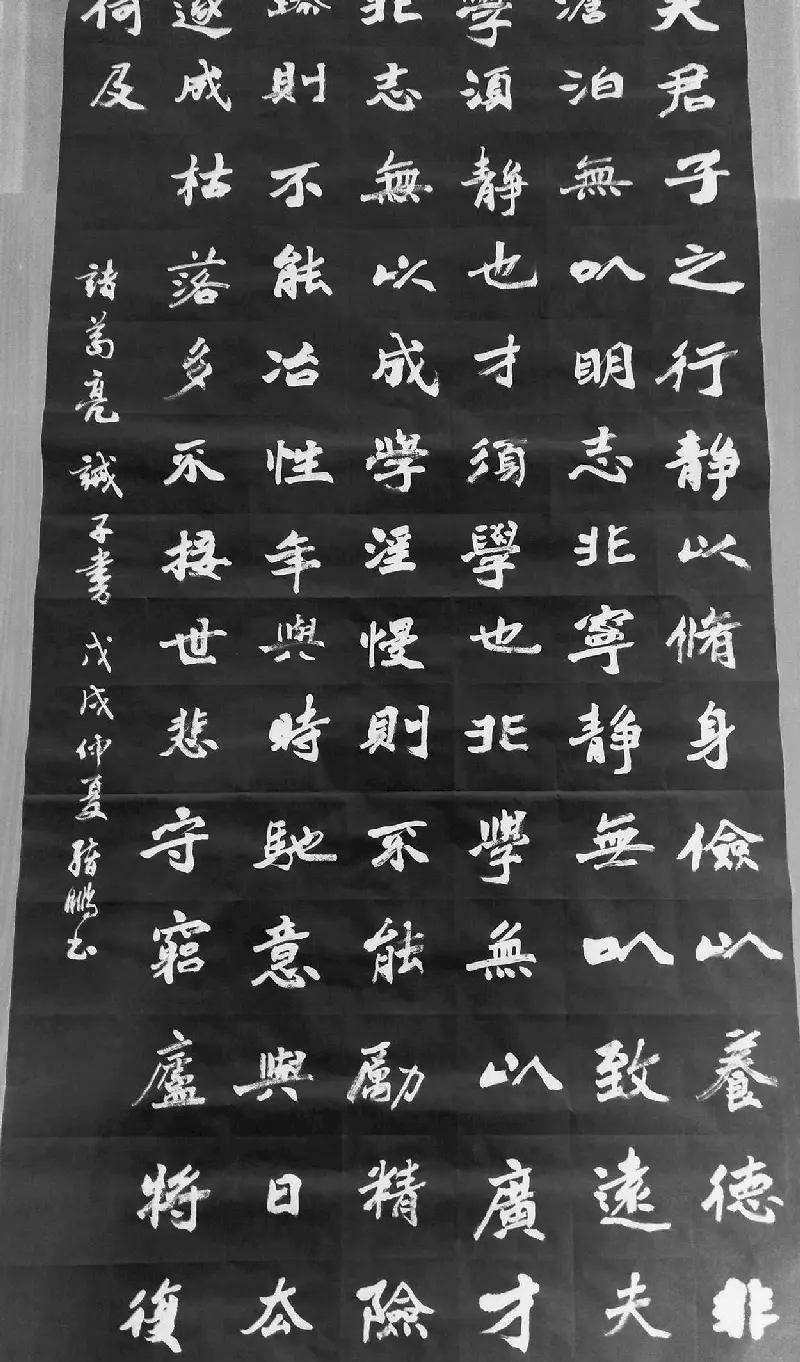 夫君子之行靜以脩身儉以養德非
澹泊無以明志非寧靜無以致遠夫
學須靜也才須學也非學無以廣才
非志無以成學淫慢則不能勵精險
躁則不能冶性年與時馳意與日去
遂成枯落多不接世悲守窮廬將復
何及
諸葛亮誡子書戊戌仲夏鵬书